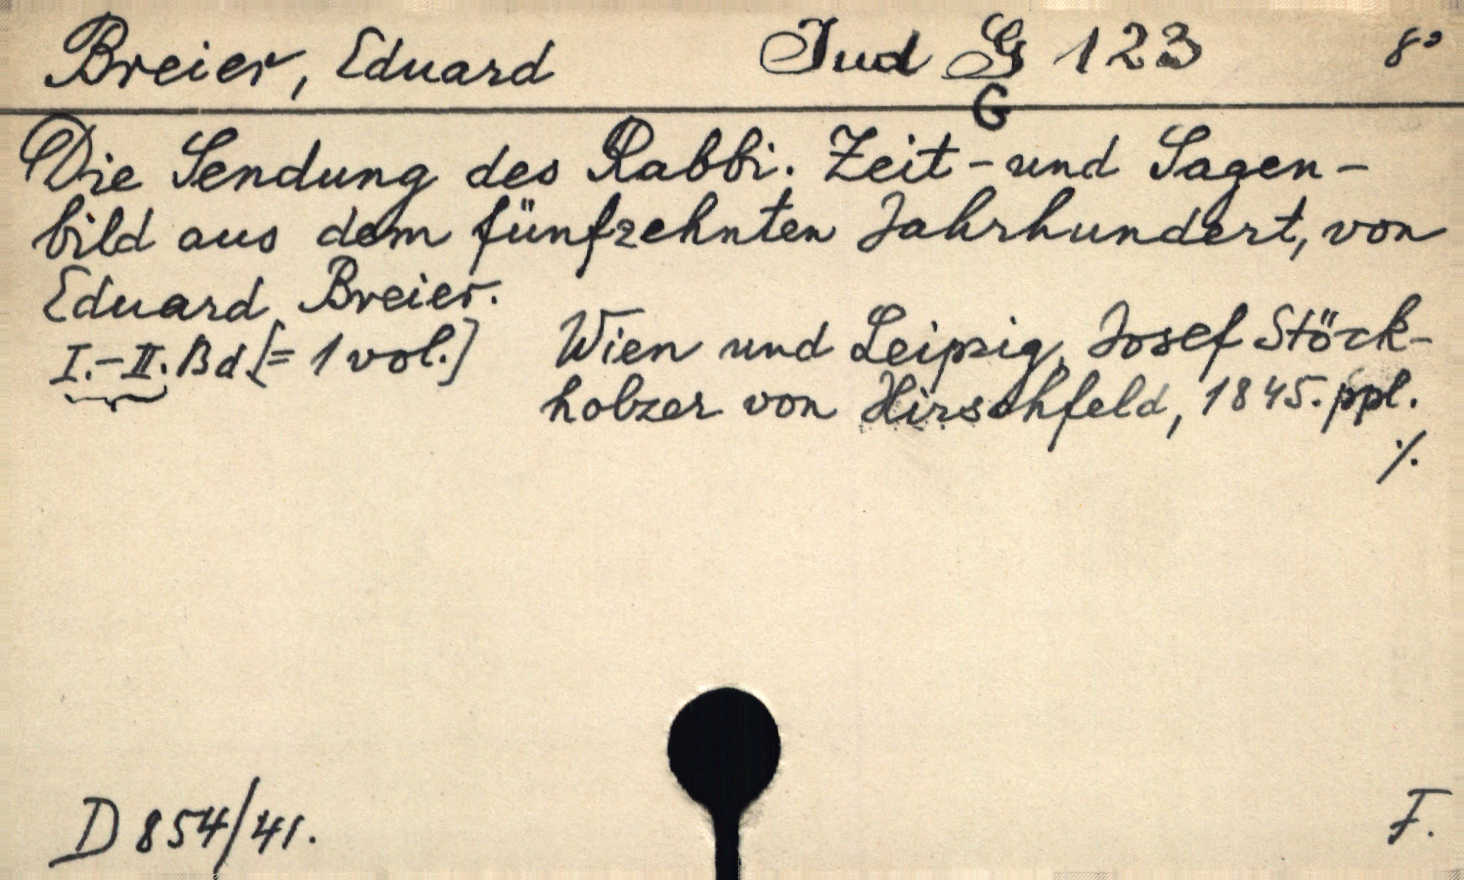 Breier, Eduard Jud G 123 8°
G
Die Sendung des Rabbi. Zeit- und Sagen-
bild aus dem fünfzehnten Jahrhundert, von
Eduard Breier.
I.-II. Bd [= 1 vol.] Wien und Leipzig, Josef Stöck-
holzer von Hirschfeld, 1845. ppl.
./.
D 854/41. F.